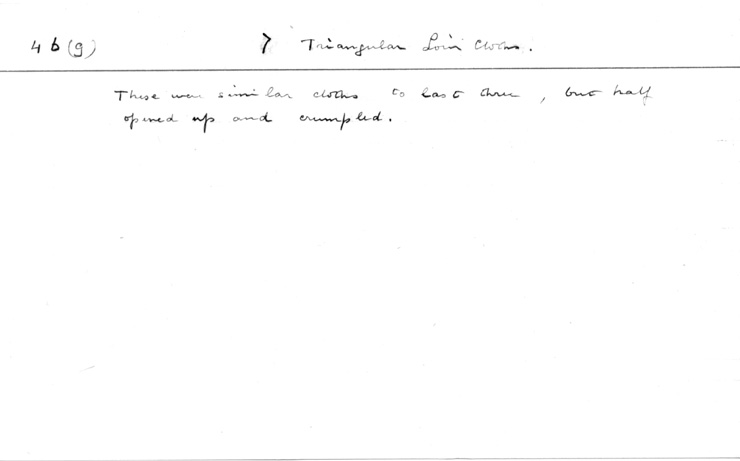 4 b (g) 7 Triangular Loin Cloths.
These were similar cloths to last three, but half
opened up and crumpled.